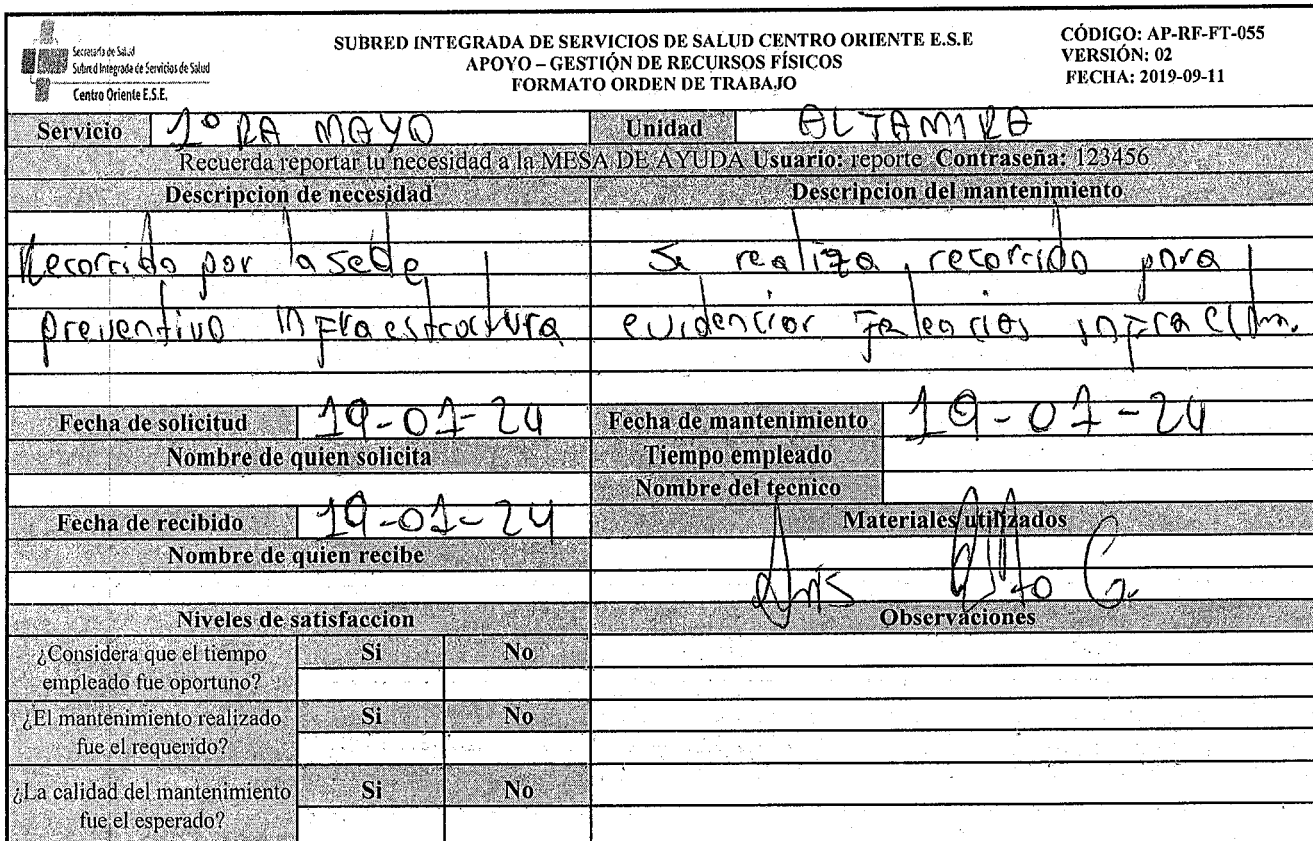 Secretaría de Salud
Subred Integrada de Servicios de Salud
Centro Oriente E.S.E.
SUBRED INTEGRADA DE SERVICIOS DE SALUD CENTRO ORIENTE E.S.E
APOYO – GESTIÓN DE RECURSOS FÍSICOS
FORMATO ORDEN DE TRABAJO
CÓDIGO: AP-RF-FT-055
VERSIÓN: 02
FECHA: 2019-09-11
Servicio 1º RA MAYO Unidad ALTAMIRA
Recuerda reportar tu necesidad a la MESA DE AYUDA Usuario: reporte Contraseña: 123456
Descripcion de necesidad
Recorrido por la sede
preventivo infraestructura
Descripcion del mantenimiento
Se realiza recorrido para
evidenciar
Fecha de solicitud 19-01-24
Fecha de mantenimiento 19-01-24
Nombre de quien solicita
Tiempo empleado
Nombre del tecnico
Fecha de recibido 19-01-24
Materiales utilizados
Nombre de quien recibe
Niveles de satisfaccion
Observaciones
¿Considera que el tiempo empleado fue oportuno? Si No
¿El mantenimiento realizado fue el requerido? Si No
¿La calidad del mantenimiento fue el esperado? Si No